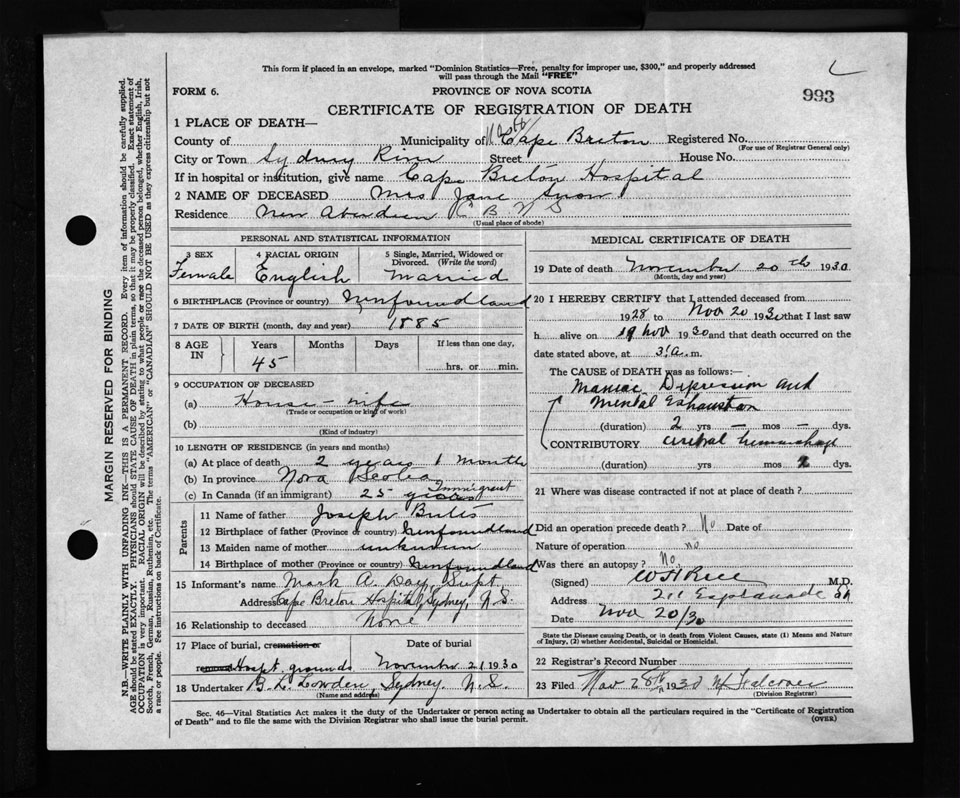 This form if placed in an envelope, marked "Dominion Statistics—Free, penalty for improper use, $300," and properly addressed
will pass through the Mail "FREE"
993
FORM 6.
PROVINCE OF NOVA SCOTIA
CERTIFICATE OF REGISTRATION OF DEATH
1 PLACE OF DEATH—
County of Municipality of Cape Breton Registered No.
(For use of Registrar General only)
City or Town Sydney River Street House No.
If in hospital or institution, give name Cape Breton Hospital
2 NAME OF DECEASED Mrs Jane
Residence New Aberdeen C B N S
(Usual place of abode)
PERSONAL AND STATISTICAL INFORMATION
3 SEX 4 RACIAL ORIGIN 5 Single, Married, Widowed or
Divorced. (Write the word)
Female English Married
6 BIRTHPLACE (Province or country) Newfoundland
7 DATE OF BIRTH (month, day and year) 1885
8 AGE IN Years Months Days If less than one day,
45 hrs. or min.
9 OCCUPATION OF DECEASED
(a) House-wife
(Trade or occupation or kind of work)
(b)
(Kind of industry)
10 LENGTH OF RESIDENCE (in years and months)
(a) At place of death 2 years 1 month
(b) In province Nova Scotia
(c) In Canada (if an immigrant) 25 years Immigrant
Parents
11 Name of father Joseph Butts
12 Birthplace of father (Province or country) Newfoundland
13 Maiden name of mother unknown
14 Birthplace of mother (Province or country) Newfoundland
15 Informant's name Mark A. Day, Supt
Address Cape Breton Hospital, Sydney, N.S.
16 Relationship to deceased None
17 Place of burial, cremation or Date of burial
removal Hospt. grounds November 21 1930
18 Undertaker B. L. Lowden, Sydney. N.S.
(Name and address)
MEDICAL CERTIFICATE OF DEATH
19 Date of death November 20th 1930
(Month, day and year)
20 I HEREBY CERTIFY that I attended deceased from
1928 to Nov 20 1930 that I last saw
h alive on 19 Nov 1930 and that death occurred on
date stated above, at 3 a. m.
The CAUSE of DEATH was as follows:—
Maniac Depression and
Mental Exhaustion
(duration) 2 yrs – mos – dys.
CONTRIBUTORY cerebral hemorrhage
(duration) yrs mos 2 dys.
21 Where was disease contracted if not at place of death?
Did an operation precede death? No Date of
Nature of operation no
Was there an autopsy? No.
(Signed) M.D.
Address 211 Esplanade
Date Nov 20/30
State the Disease causing Death, or in death from Violent Causes, state (1) Means and Nature
of Injury, (2) whether Accidental, Suicidal or Homicidal.
22 Registrar's Record Number
23 Filed Nov 28th 1930
(Division Registrar)
Sec. 46—Vital Statistics Act makes it the duty of the Undertaker or person acting as Undertaker to obtain all the particulars required in the "Certificate of Registration
of Death" and to file the same with the Division Registrar who shall issue the burial permit.
(OVER)
MARGIN RESERVED FOR BINDING
N.B.—WRITE PLAINLY WITH UNFADING INK—THIS IS A PERMANENT RECORD. Every item of information should be carefully supplied.
AGE should be stated EXACTLY. PHYSICIANS should STATE CAUSE OF DEATH in plain terms, so that it may be properly classified. Exact statement of
OCCUPATION is very important. RACIAL ORIGIN will be described by stating to what people or race the deceased person belonged, whether English, Irish,
Scotch, French, German, Russian, Ruthenian, etc. The terms "AMERICAN" or "CANADIAN" SHOULD NOT BE USED as they express citizenship but not
a race or people. See instructions on back of Certificate.